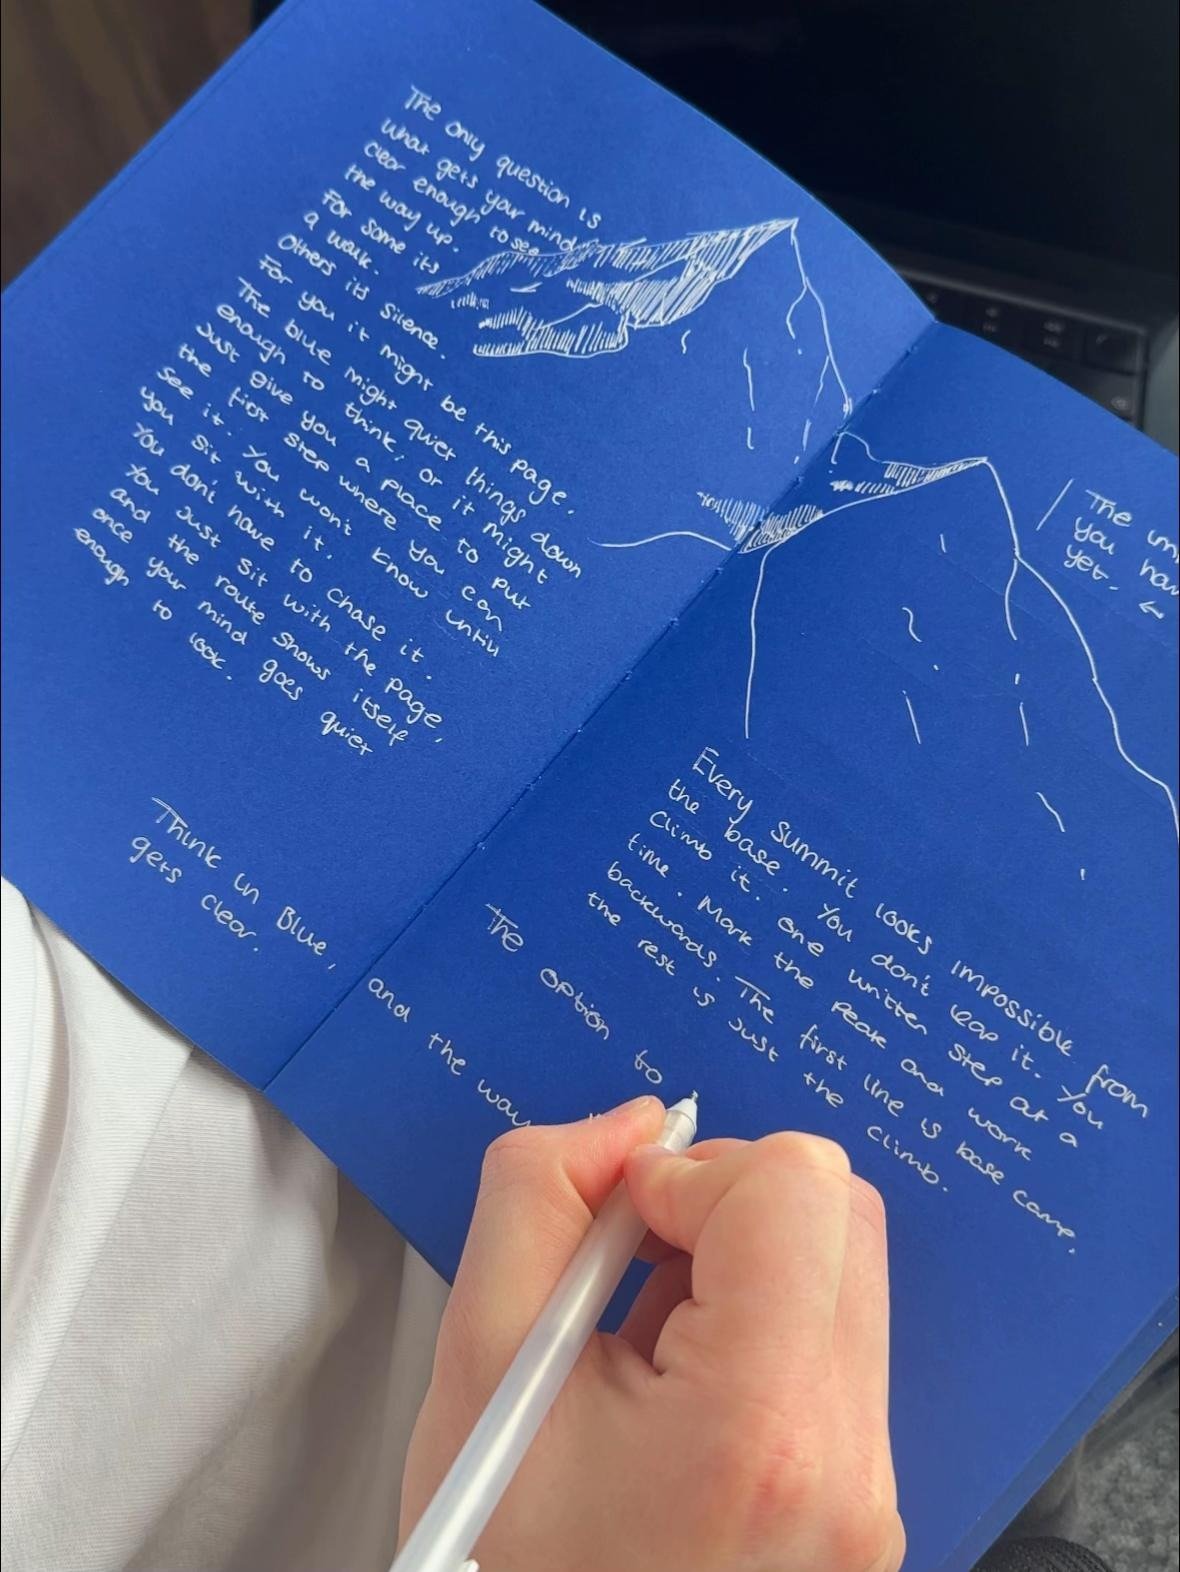 The only question is
what gets your mind
clear enough to see
the way up.
For some its
a walk.
Others its silence.
For you it might be this page.
The blue might quiet things down
enough to think, or it might
Just give you a place to put
the first step where you can
see it. You won't know until
you sit with it.
You don't have to chase it.
You just sit with the page,
and the route shows itself
once your mind goes quiet
enough to look.
Think in Blue,
gets clear.
The
you
yet. ←
Every summit looks impossible from
the base. You don't leap it. You
climb it. One written step at a
time. Mark the peak and work
backwards. The first line is base camp.
the rest is just the climb.
The option to
and the way